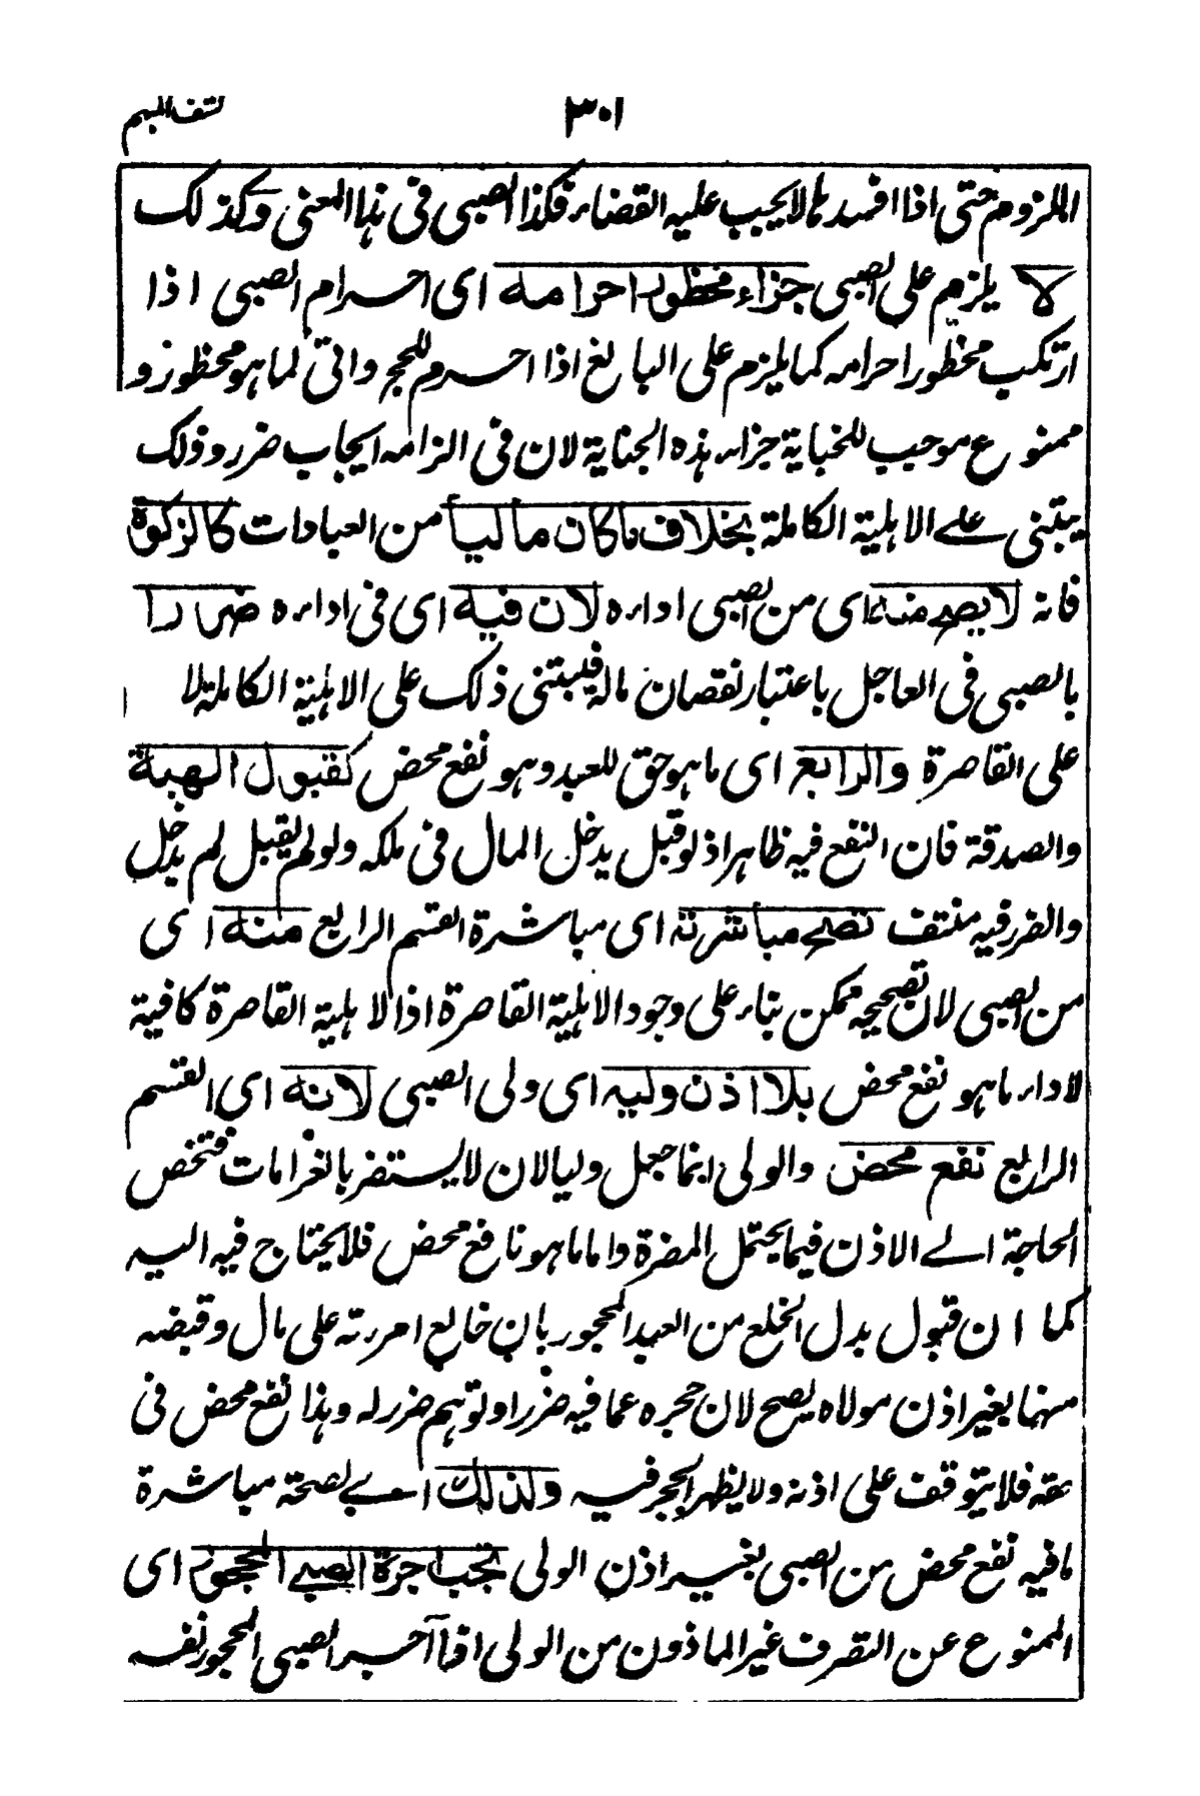 كشف المبهم
٣٠١
اللزوم حتى اذا افسد لما لا يجب عليه القضاء فكذا الصبى فى هذا المعنى وكذلك
لا يلزم على الصبى جزاء محظور احرامه اى احرام الصبى اذا
ارتكب محظورا حرامه كما يلزم على البالغ اذا احرم للحج واتى لما هو محظور و
ممنوع موجب للجناية جزاء هذه الجناية لان فى الزامه ايجاب ضرر وذلك
يبتنى على الاهلية الكاملة بخلاف ما كان ماليا من العبادات كالزكوة
فانه لا يصح منه اى من الصبى اداءه لان فيه اى فى اداءه ضررا
بالصبى فى العاجل باعتبار نقصان ماله فيبتنى ذلك على الاهلية الكاملة لا
على القاصرة والرابع اى ما هو حق للعبد وهو نفع محض كقبول الهبة
والصدقة فان النفع فيه ظاهر اذ لو قبل يدخل المال فى ملكه ولو لم يقبل لم يدخل
والضرر فيه منتف تصح مباشرته اى مباشرة القسم الرابع منه اى
من الصبى لان تصحيحه ممكن بناء على وجود الاهلية القاصرة اذ الاهلية القاصرة كافية
لاداء ما هو نفع محض بلا اذن وليه اى ولى الصبى لانه اى القسم
الرابع نفع محض والولى انما جعل وليا لان لا يستضر بالغرامات فتختص
الحاجة الى الاذن فيما يحتمل المضرة واما ما هو نافع محض فلا يحتاج فيه اليه
كما ان قبول بدل الخلع من العبد المحجور بان خالع امرءته على مال وقبضه
منهما بغير اذن مولاه يصح لان حجره عما فيه ضرر او توهم ضرر له وهذا نفع محض فى
حقه فلا يتوقف على اذنه ولا يظهر الحجر فيه ولذلك اى لصحة مباشرة
ما فيه نفع محض من الصبى بغير اذن الولى تجب اجرة الصبى المحجور اى
الممنوع عن التصرف غير الماذون من الولى اذا آجر الصبى المحجور نفسه